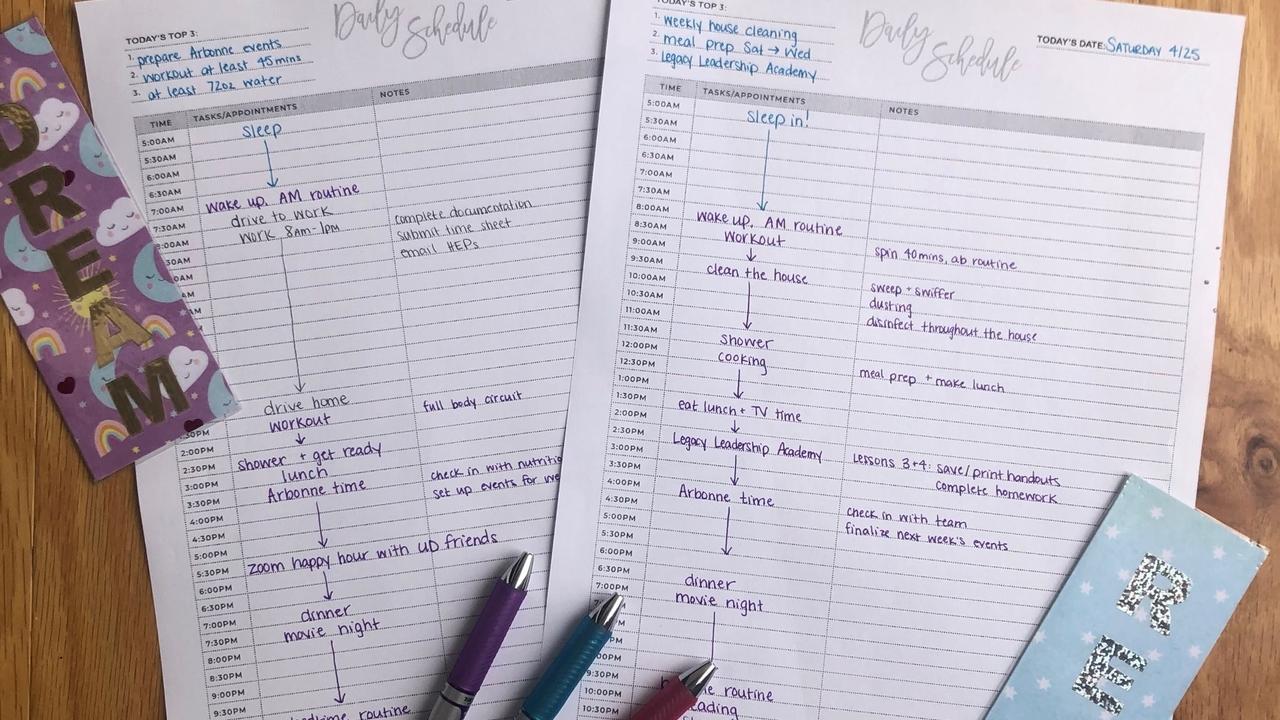 TODAY'S TOP 3:
1. prepare Arbonne events
2. workout at least 45mins
3. at least 72oz water
Daily Schedule
TIME TASKS/APPOINTMENTS NOTES
5:00AM sleep
5:30AM
6:00AM
6:30AM
7:00AM wake up. AM routine
7:30AM drive to work complete documentation
8:00AM work 8am-1pm submit time sheet
email HEPs
drive home full body circuit
workout
2:00PM
2:30PM shower + get ready
3:00PM lunch check in with
3:30PM Arbonne time set up events for
4:00PM
4:30PM
5:00PM
5:30PM zoom happy hour with UD friends
6:00PM
6:30PM
7:00PM dinner
7:30PM movie night
8:00PM
8:30PM
9:00PM
9:30PM
routine
TODAY'S TOP 3:
1. weekly house cleaning
2. meal prep Sat → Wed
3. Legacy Leadership Academy
Daily Schedule
TODAY'S DATE: SATURDAY 4/25
TIME TASKS/APPOINTMENTS NOTES
5:00AM sleep in!
5:30AM
6:00AM
6:30AM
7:00AM
7:30AM
8:00AM wake up. AM routine
8:30AM workout spin 40mins, ab routine
9:00AM
9:30AM clean the house sweep + swiffer
10:00AM dusting
10:30AM disinfect throughout the house
11:00AM
11:30AM shower
12:00PM cooking meal prep + make lunch
12:30PM
1:00PM
1:30PM eat lunch + TV time
2:00PM
2:30PM Legacy Leadership Academy Lessons 3+4: save/print handouts
3:00PM complete homework
3:30PM
4:00PM Arbonne time check in with team
4:30PM finalize next week's events
5:00PM
5:30PM
6:00PM
6:30PM dinner
7:00PM movie night
9:30PM routine
10:00PM
10:30PM
DREAM
RE